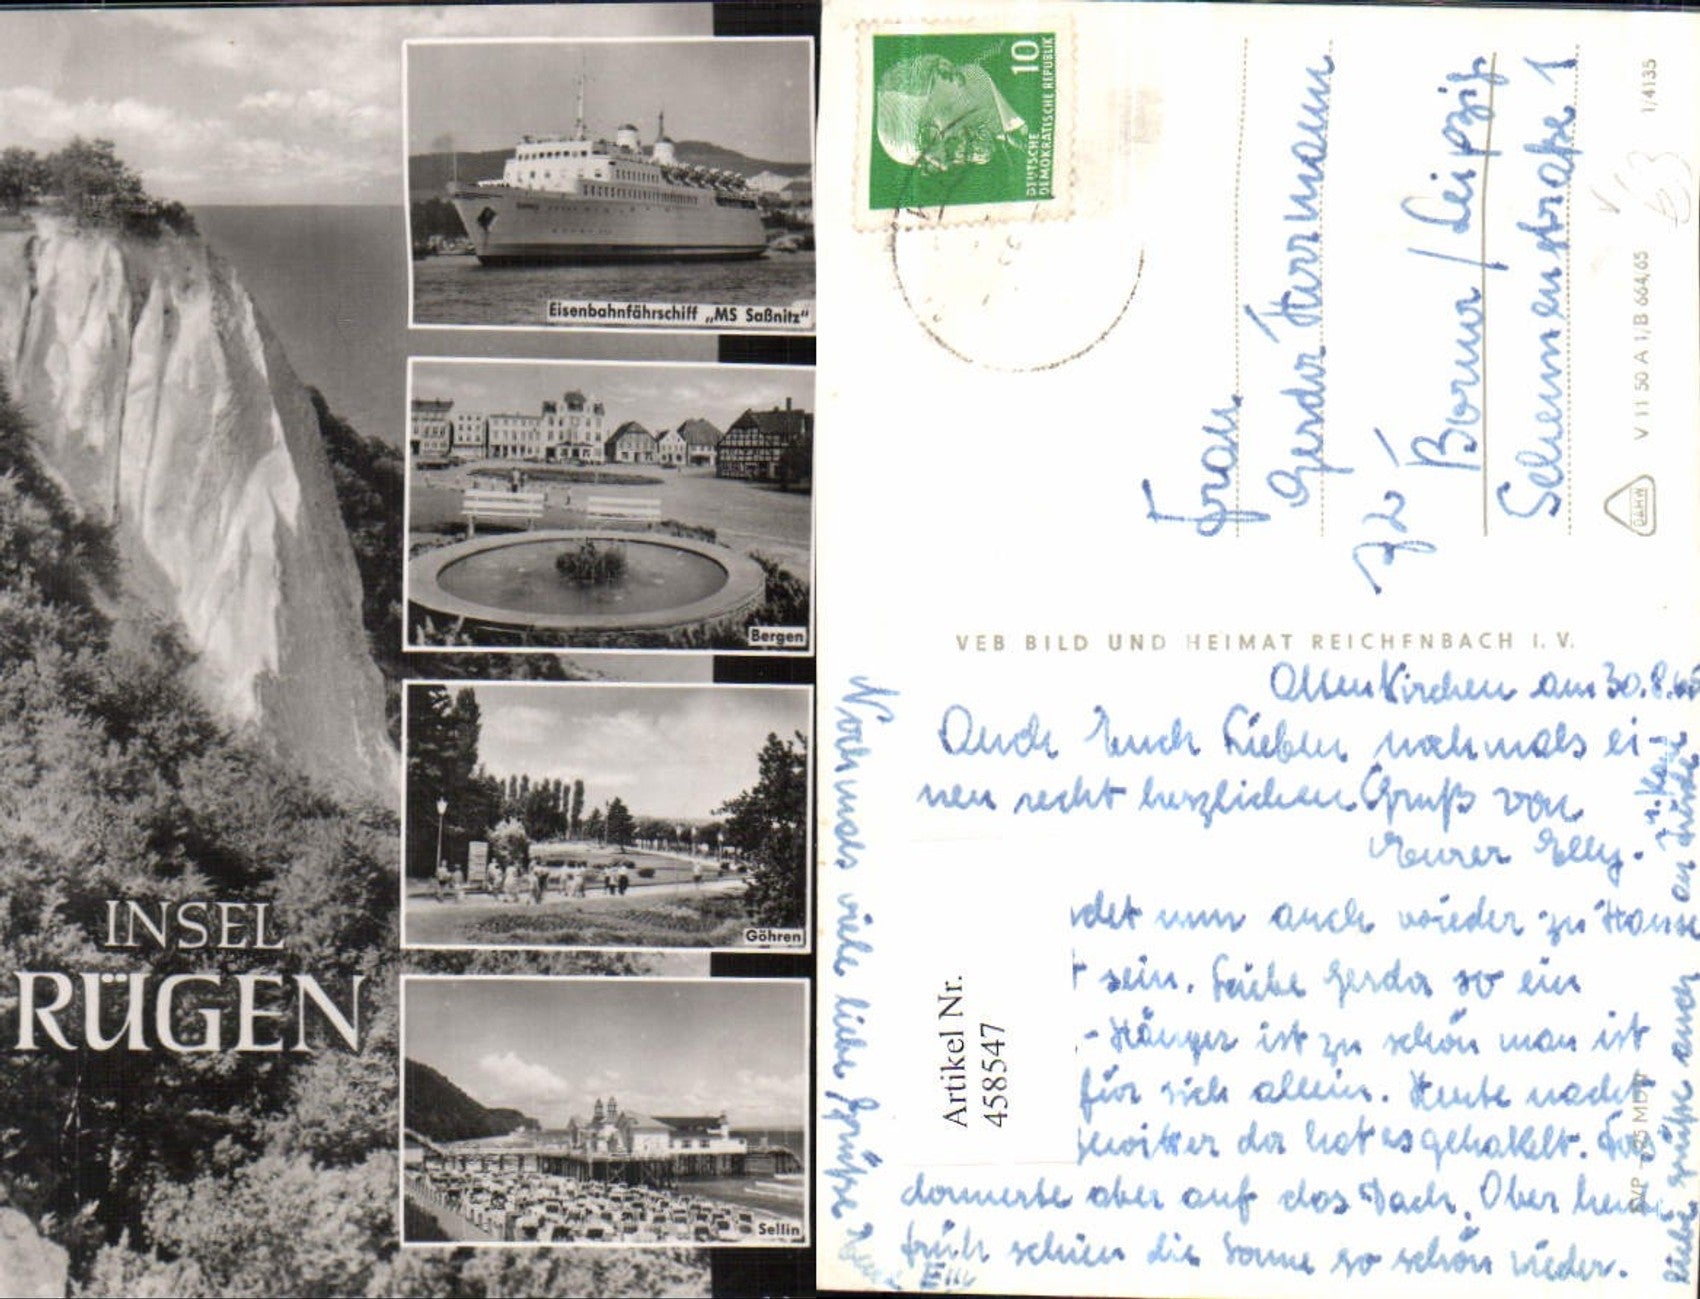 Eisenbahnfährschiff „MS Saßnitz“
Bergen
Göhren
Sellin
INSEL
RÜGEN
10
DEUTSCHE
DEMOKRATISCHE REPUBLIK
Frau
Gerda Herrmann
Borna / Leipzig
1/4135
V 11 50 A 1/B 664/65
VEB BILD UND HEIMAT REICHENBACH I. V.
Altenkirchen am 30.8.65
Auch Euch Lieben nochmals ei-
nen recht herzlichen Gruß von
Eurer Elly.
det nun auch wieder zu Hause
sein. Liebe Gerda so ein
-Hänger ist zu schön man ist
für sich allein. Heute nacht
Gewitter da hat es geknallt. Es
donnerte aber auf das Dach. Aber heute
früh schien die Sonne so schön wieder.
Nochmals viele liebe Grüße
Artikel Nr.
458547